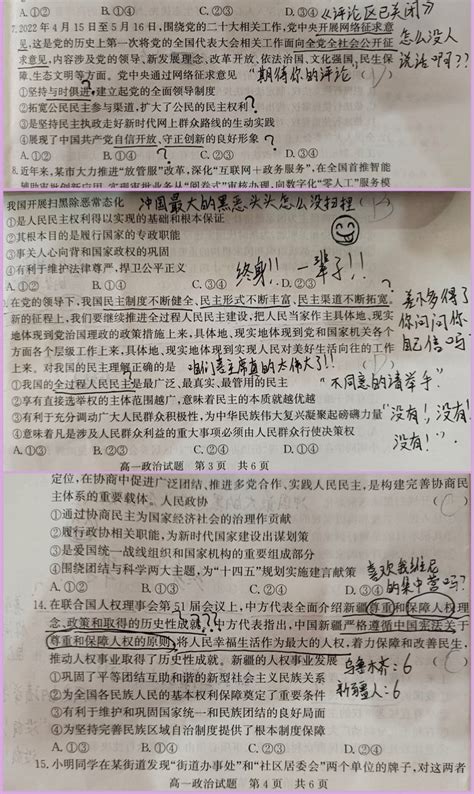 A. ①② B. ①③ C. ②④ D. ③④
《评论区已关闭》
怎么没人
说话啊??
7.2022 年 4 月 15 日至 5 月 16 日,围绕党的二十大相关工作,党中央开展网络征求意
见,这是党的历史上第一次将党的全国代表大会相关工作面向全党全社会公开征
求意见,内容涉及党的领导、新发展理念、改革开放、依法治国、文化强国、民生保
障、生态文明等方面。党中央通过网络征求意见
"期待你的评论"
①坚持与时俱进,建立起党的全面领导制度
②拓宽公民民主参与渠道,扩大了公民的民主权利?
③是坚持民主执政走好新时代网上群众路线的生动实践
④展现了中国共产党自信开放、守正创新的良好形象?
A. ①② B. ①④ C. ②③ D. ③④
8.近年来,某市大力推进"放管服"改革,深化"互联网+政务服务",在全国首推智能
我国开展扫黑除恶常态化
中国最大的黑恶头头怎么没扫掉
①是人民民主权利得以实现的基础和根本保证
②其根本目的是履行国家的专政职能
③事关人心向背和国家政权的巩固
④有利于维护法律尊严,捍卫公平正义
A. ①② B. ①④ C. ③④ D. ②③
终身!! 一辈子!!
在党的领导下,我国民主制度不断健全、民主形式不断丰富、民主渠道不断拓宽。
新的征程上,我们要继续推进全过程人民民主建设,把人民当家作主具体地、现实
地体现到党治国理政的政策措施上来,具体地、现实地体现到党和国家机关各个
方面各个层级工作上来,具体地、现实地体现到实现人民对美好生活向往的工作
上来。对我国的民主理解正确的是
差不多得了
你问问你
自己信吗
①我国的全过程人民民主是最广泛、最真实、最管用的民主
"不同意的请举手"
②享有直接选举权的主体范围越广,意味着民主的本质就越优越
③有利于充分调动广大人民群众积极性,为中华民族伟大复兴凝聚起磅礴力量
"没有!,没有!
没有!"
④意味着凡是涉及人民群众利益的重大事项必须由人民群众行使决策权
A. ①③ B. ①④ C. ②③ D. ②④
高一政治试题 第 3 页 共 6 页
定位,在协商中促进广泛团结、推进多党合作、实践人民民主,是构建完善协商民
主体系的重要载体。人民政协
①通过协商民主为国家经济社会的治理作贡献
②履行政协相关职能,为新时代国家建设出谋划策
③是爱国统一战线组织和国家机构的重要组成部分
④围绕团结与民主两大主题,为"十四五"规划实施建言献策
A. ①② B. ①③ C. ②④ D. ③④
的集中营吗?
14. 在联合国人权理事会第 51 届会议上,中方代表全面介绍新疆尊重和保障人权理
念、政策和取得的历史性成就。中方代表指出,中国新疆严格遵循中国宪法关于
尊重和保障人权的原则,将人民幸福生活作为最大的人权,着力保障和改善民生,
推动人权事业取得了历史性成就。新疆的人权事业发展
乌鲁木齐:6
①巩固了平等团结互助和谐的新型社会主义民族关系
新疆人:6
②为全国各民族人民的基本权利保障奠定了重要条件
③有利于维护和巩固国家统一和民族团结的良好局面
④为坚持完善民族区域自治制度提供了根本制度保障
A. ①③ B. ①④ C. ②③ D. ②④
15. 小明同学在某街道发现"街道办事处"和"社区居委会"两个单位的牌子,对这两者
高一政治试题 第 4 页 共 6 页